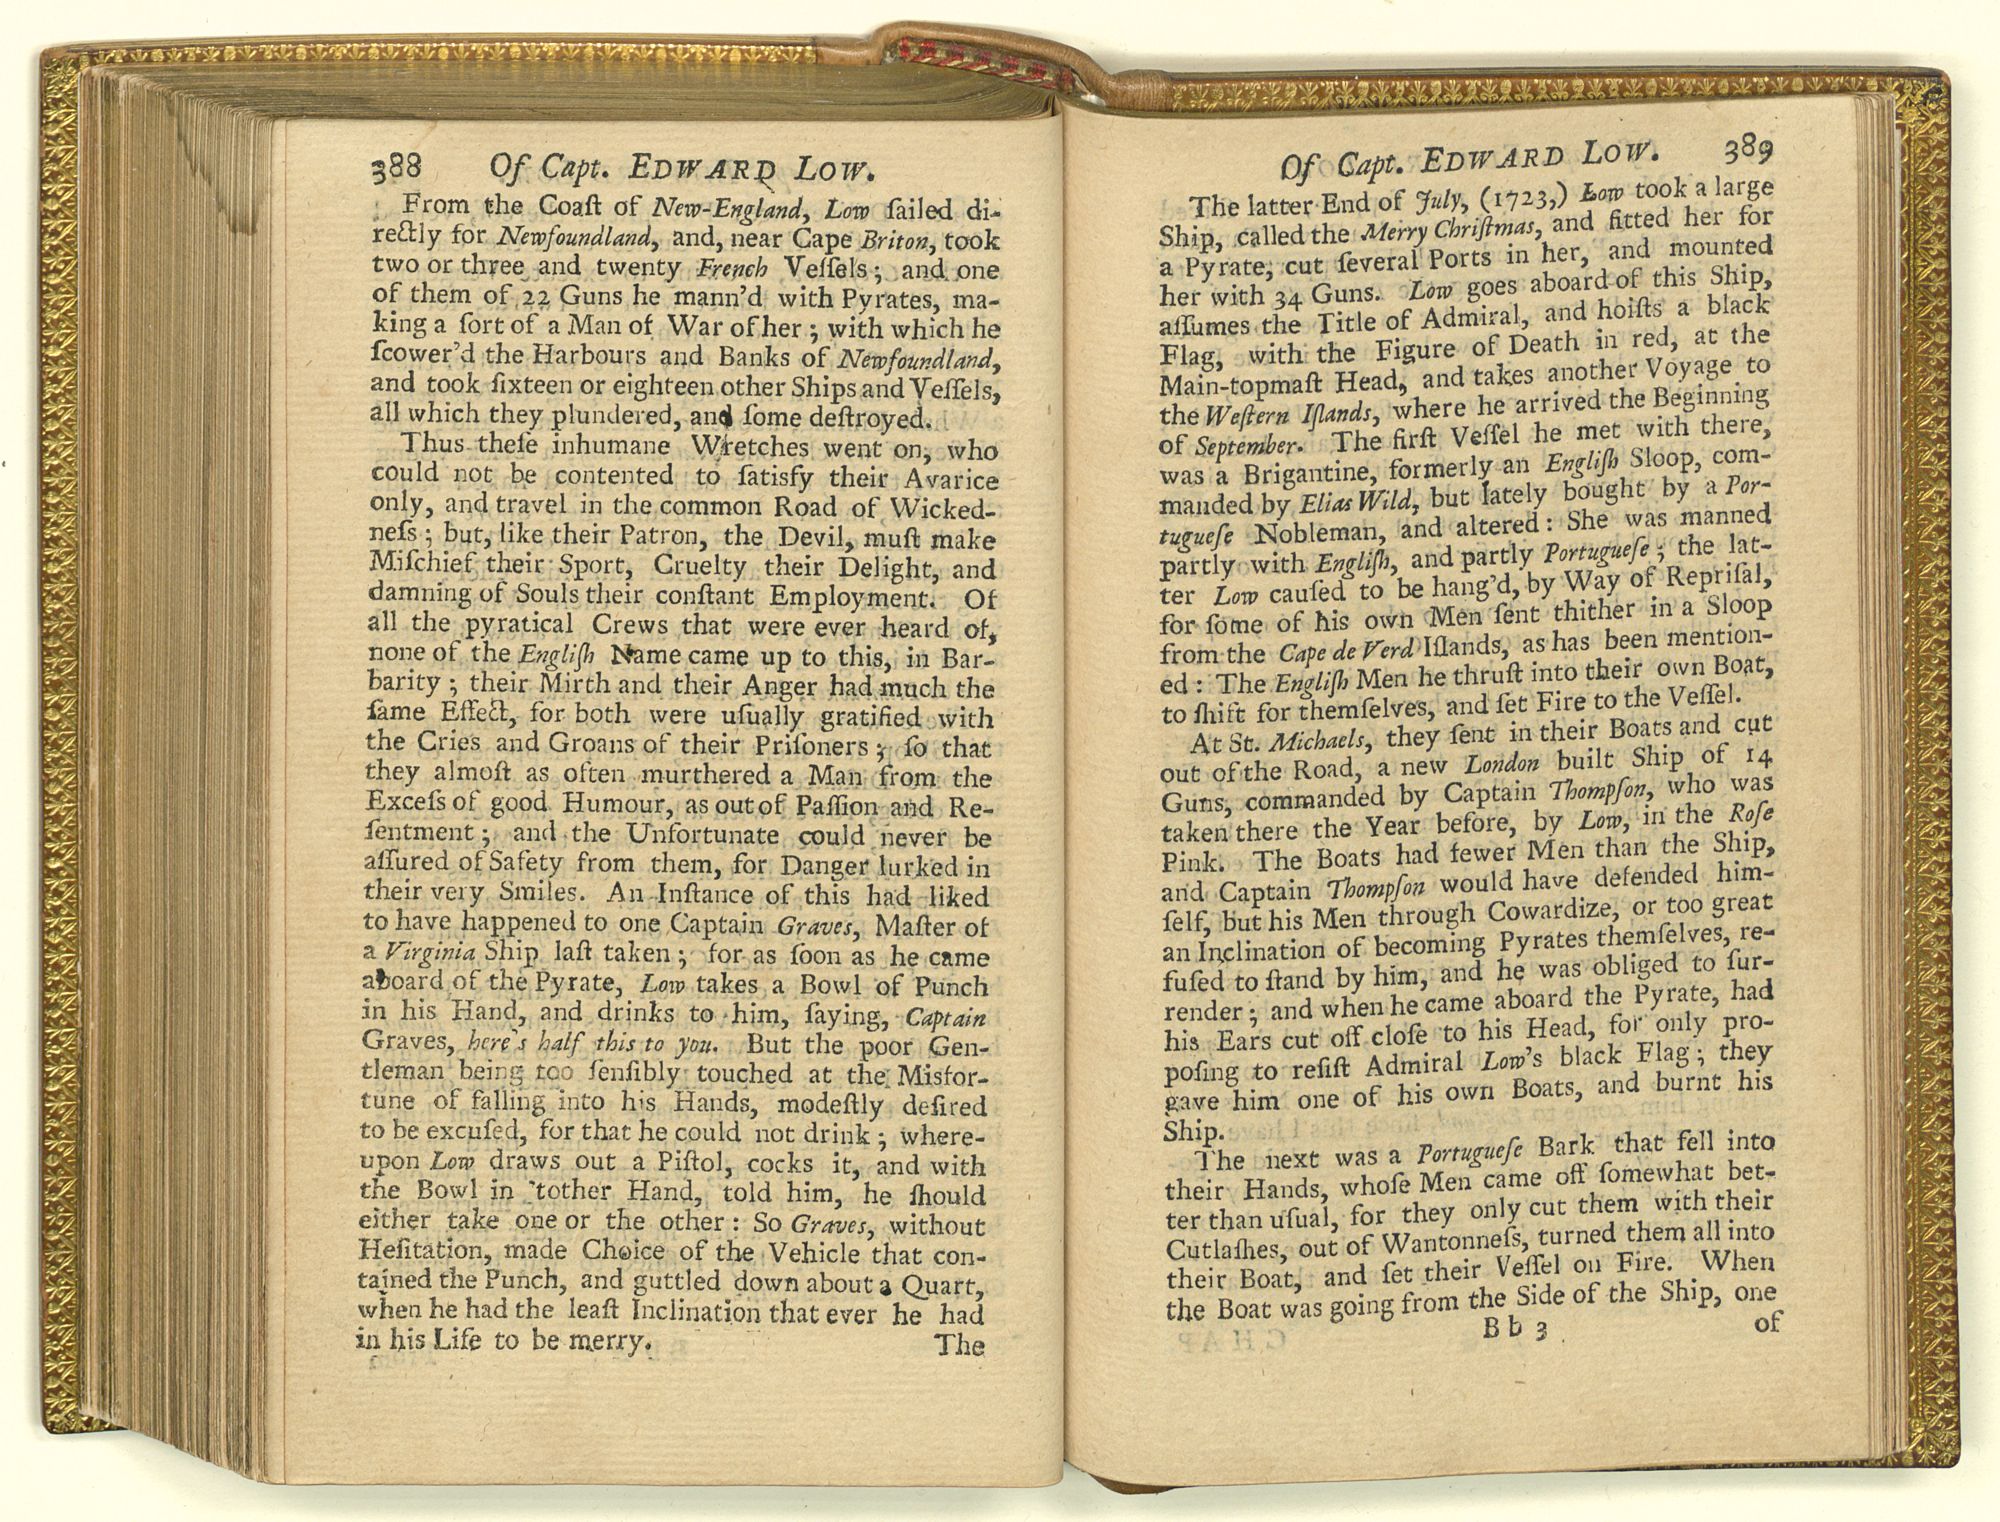 388 Of Capt. EDWARD LOW.
From the Coaſt of New-England, Low ſailed di-
rectly for Newfoundland, and, near Cape Briton, took
two or three and twenty French Veſſels; and one
of them of 22 Guns he mann'd with Pyrates, ma-
king a ſort of a Man of War of her; with which he
ſcower'd the Harbours and Banks of Newfoundland,
and took ſixteen or eighteen other Ships and Veſſels,
all which they plundered, and ſome deſtroyed.
Thus theſe inhumane Wretches went on, who
could not be contented to ſatisfy their Avarice
only, and travel in the common Road of Wicked-
neſs; but, like their Patron, the Devil, muſt make
Miſchief their Sport, Cruelty their Delight, and
damning of Souls their conſtant Employment. Of
all the pyratical Crews that were ever heard of,
none of the Engliſh Name came up to this, in Bar-
barity; their Mirth and their Anger had much the
ſame Effect, for both were uſually gratified with
the Cries and Groans of their Priſoners; ſo that
they almoſt as often murthered a Man from the
Exceſs of good Humour, as out of Paſſion and Re-
ſentment; and the Unfortunate could never be
aſſured of Safety from them, for Danger lurked in
their very Smiles. An Inſtance of this had liked
to have happened to one Captain Graves, Maſter of
a Virginia Ship laſt taken; for as ſoon as he came
aboard of the Pyrate, Low takes a Bowl of Punch
in his Hand, and drinks to him, ſaying, Captain
Graves, here's half this to you. But the poor Gen-
tleman being too ſenſibly touched at the Misfor-
tune of falling into his Hands, modeſtly deſired
to be excuſed, for that he could not drink; where-
upon Low draws out a Piſtol, cocks it, and with
the Bowl in 'tother Hand, told him, he ſhould
either take one or the other: So Graves, without
Heſitation, made Choice of the Vehicle that con-
tained the Punch, and guttled down about a Quart,
when he had the leaſt Inclination that ever he had
in his Life to be merry. The
Of Capt. EDWARD LOW. 389
The latter End of July, (1723,) Low took a large
Ship, called the Merry Chriſtmas, and fitted her for
a Pyrate, cut ſeveral Ports in her, and mounted
her with 34 Guns. Low goes aboard of this Ship,
aſſumes the Title of Admiral, and hoiſts a black
Flag, with the Figure of Death in red, at the
Main-topmaſt Head, and takes another Voyage to
the Weſtern Iſlands, where he arrived the Beginning
of September. The firſt Veſſel he met with there,
was a Brigantine, formerly an Engliſh Sloop, com-
manded by Elias Wild, but lately bought by a Por-
tugueſe Nobleman, and altered: She was manned
partly with Engliſh, and partly Portugueſe; the lat-
ter Low cauſed to be hang'd, by Way of Repriſal,
for ſome of his own Men ſent thither in a Sloop
from the Cape de Verd Iſlands, as has been mention-
ed: The Engliſh Men he thruſt into their own Boat,
to ſhift for themſelves, and ſet Fire to the Veſſel.
At St. Michaels, they ſent in their Boats and cut
out of the Road, a new London built Ship of 14
Guns, commanded by Captain Thompſon, who was
taken there the Year before, by Low, in the Roſe
Pink. The Boats had fewer Men than the Ship,
and Captain Thompſon would have defended him-
ſelf, but his Men through Cowardize, or too great
an Inclination of becoming Pyrates themſelves, re-
fuſed to ſtand by him, and he was obliged to ſur-
render; and when he came aboard the Pyrate, had
his Ears cut off cloſe to his Head, for only pro-
poſing to reſiſt Admiral Low's black Flag; they
gave him one of his own Boats, and burnt his
Ship.
The next was a Portugueſe Bark that fell into
their Hands, whoſe Men came off ſomewhat bet-
ter than uſual, for they only cut them with their
Cutlaſhes, out of Wantonneſs, turned them all into
their Boat, and ſet their Veſſel on Fire. When
the Boat was going from the Side of the Ship, one
B b 3 of